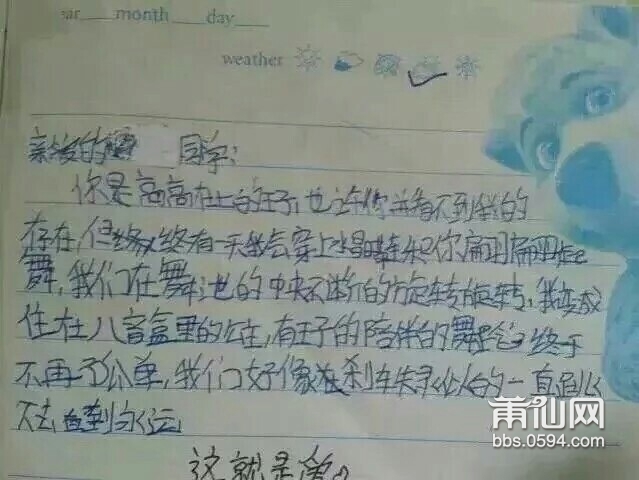 ear month day
weather
亲爱的 同学：
你是高高在上的王子，也许你并看不到我的
存在，但 终有一天我会穿上水晶鞋 和你翩翩起
舞，我们在舞池的中央不断的旋转旋转，我变成
住在八音盒里的公主，有王子的陪伴的舞 终于
不再孤单，我们好像 刹车失灵似的一直
下去 到永远
这就是爱。
莆仙网
bbs.0594.com